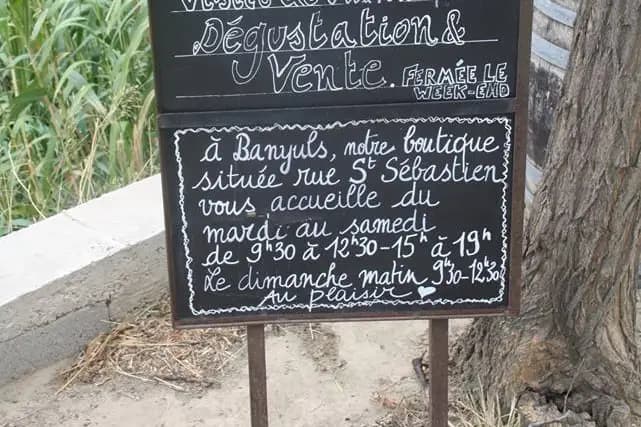 Dégustation &
Vente.
FERMÉE LE
WEEK-END
à Banyuls, notre boutique
située rue St Sébastien
vous accueille du
mardi au samedi
de 9h30 à 12h30-15h à 19h
Le dimanche matin 9h30-12h30
Au plaisir